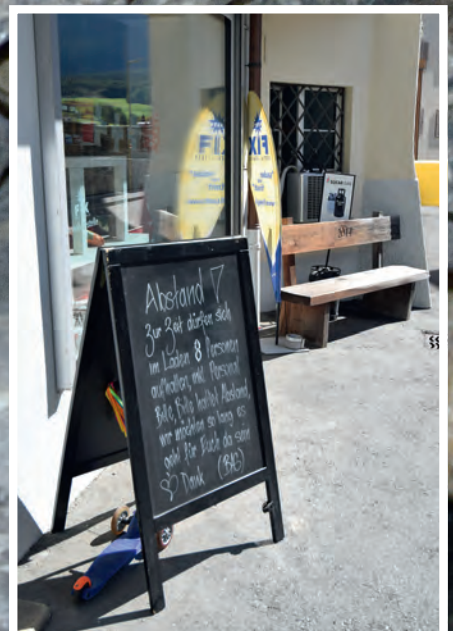 Abstand!
Zur Zeit dürfen sich
im Laden 8 Personen
aufhalten, inkl Personal
Bitte, Bitte haltet Abstand,
wir möchten so lang es
geht für Euch da sein
♡ Dank (BAG)
FIX